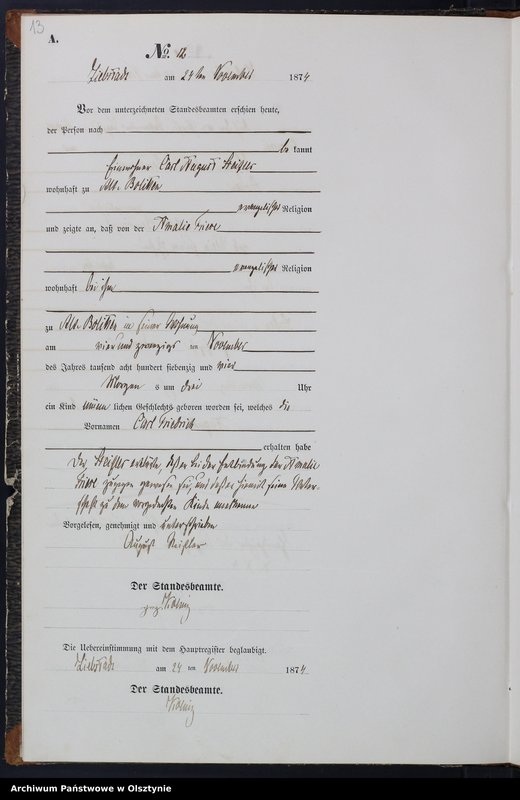 13
A.
No. 12
Liebstadt am 24ten November 1874
Vor dem unterzeichneten Standesbeamten erschien heute,
der Person nach
be kannt
Einwohner Carl August
wohnhaft zu Alt-Bolitten
evangelischer Religion
und zeigte an, daß von der Amalie
evangelischer Religion
wohnhaft bei ihm
zu Alt-Bolitten in seiner Wohnung
am vier und zwanzigs ten November
des Jahres tausend acht hundert siebenzig und vier
Morgen s um drei Uhr
ein Kind männ lichen Geschlechts geboren worden sei, welches die
Vornamen Carl Friedrich
erhalten habe
Der erklärte, daß er bei der Entbindung der Amalie
zugegen gewesen sei, und daß er hiermit seine Vater-
schaft zu dem vorgedachten Kinde anerkenne
Vorgelesen, genehmigt und unterschrieben
August
Der Standesbeamte.
gez.
Die Uebereinstimmung mit dem Hauptregister beglaubigt.
Liebstadt am 24 ten November 1874
Der Standesbeamte.
Archiwum Państwowe w Olsztynie